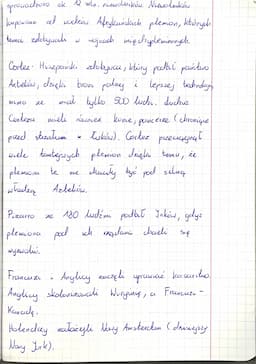 sprowadzono ok 12 mln. niewolników. Niewolników
kupowano od wodzów Afrykańskich plemion, których
temu zdobywali w wojnach międzyplemiennych.
Cortez - Hiszpański zdobywca, który podbił państwo
Azteków, dzięki broni palnej i lepszej technologii
mimo że miał tylko 500 ludzi. Ludzie
Corteza mieli również konie, pancerze (chroniące
przed strzałami z łuków). Cortez przeciągnął
wiele tamtejszych plemion dzięki temu, że
plemiona te nie chciały być pod silną
władzą Azteków.
Pizarro ze 180 ludźmi podbił Inków, gdyż
plemiona pod ich rządami chciały się
wyzwolić.
Francuzi i Anglicy zaczęli uprawiać korsarstwo.
Anglicy skolonizowali Wirginię, a Francuzi -
Kanadę.
Holendrzy założyli Nowy Amsterdam (dzisiejszy
Nowy Jork).